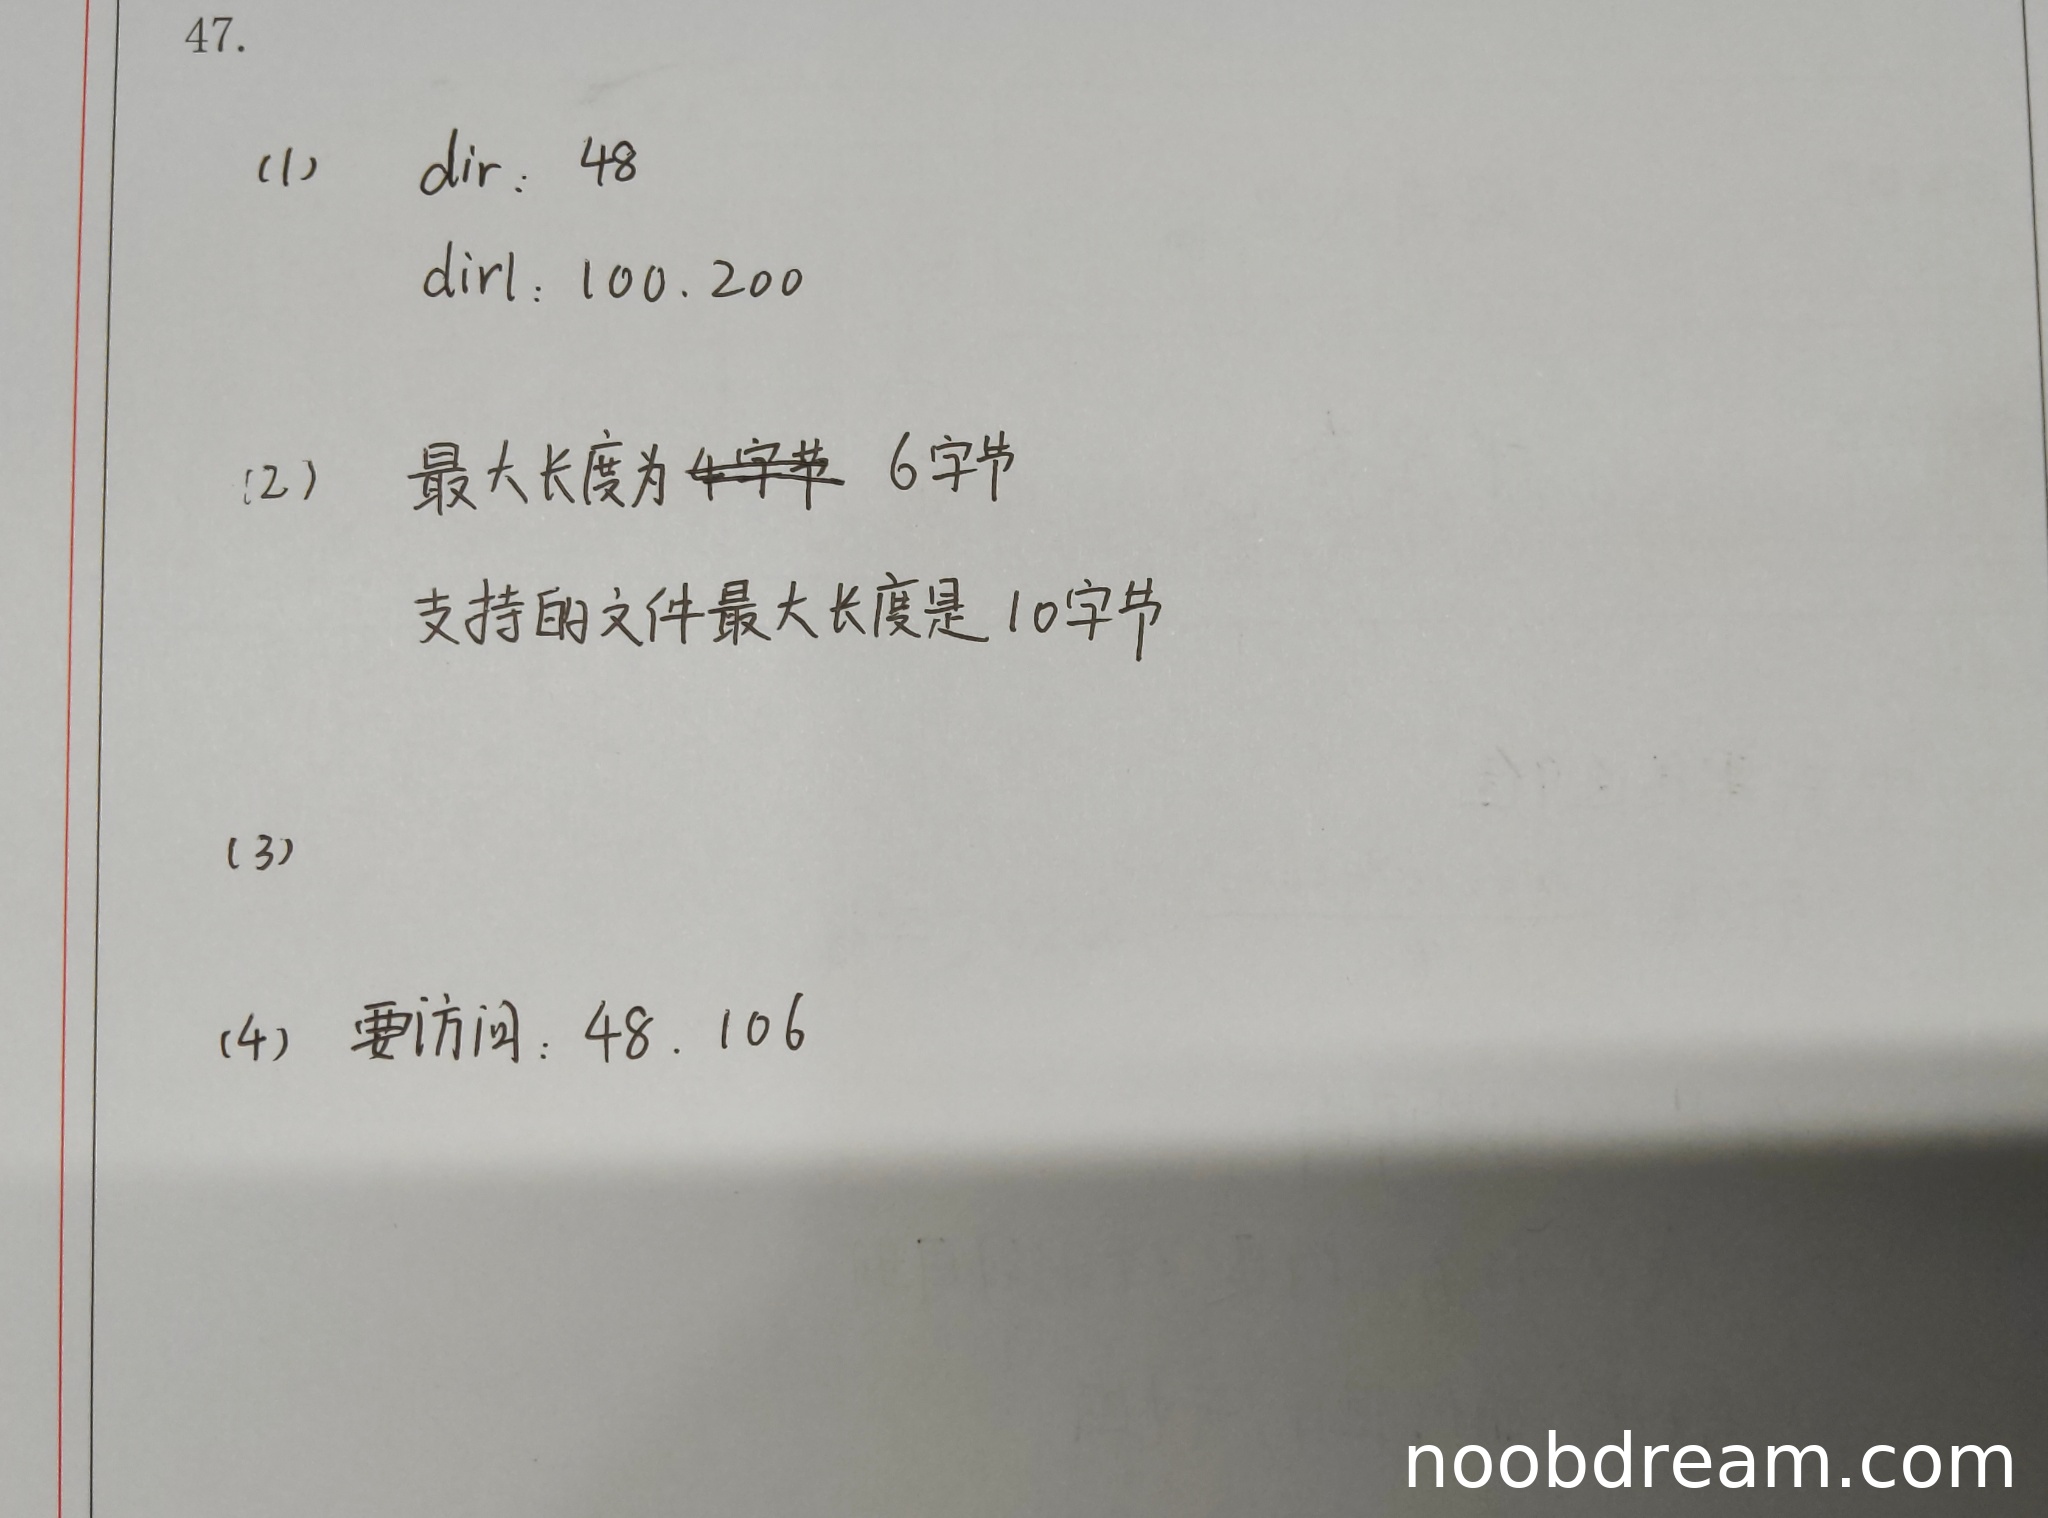 47.
(1) dir: 48
dir1: 100. 200
(2) 最大长度为 4字节 6字节
支持的文件最大长度是 10字节
(3)
(4) 要访问: 48. 106
noobdream.com